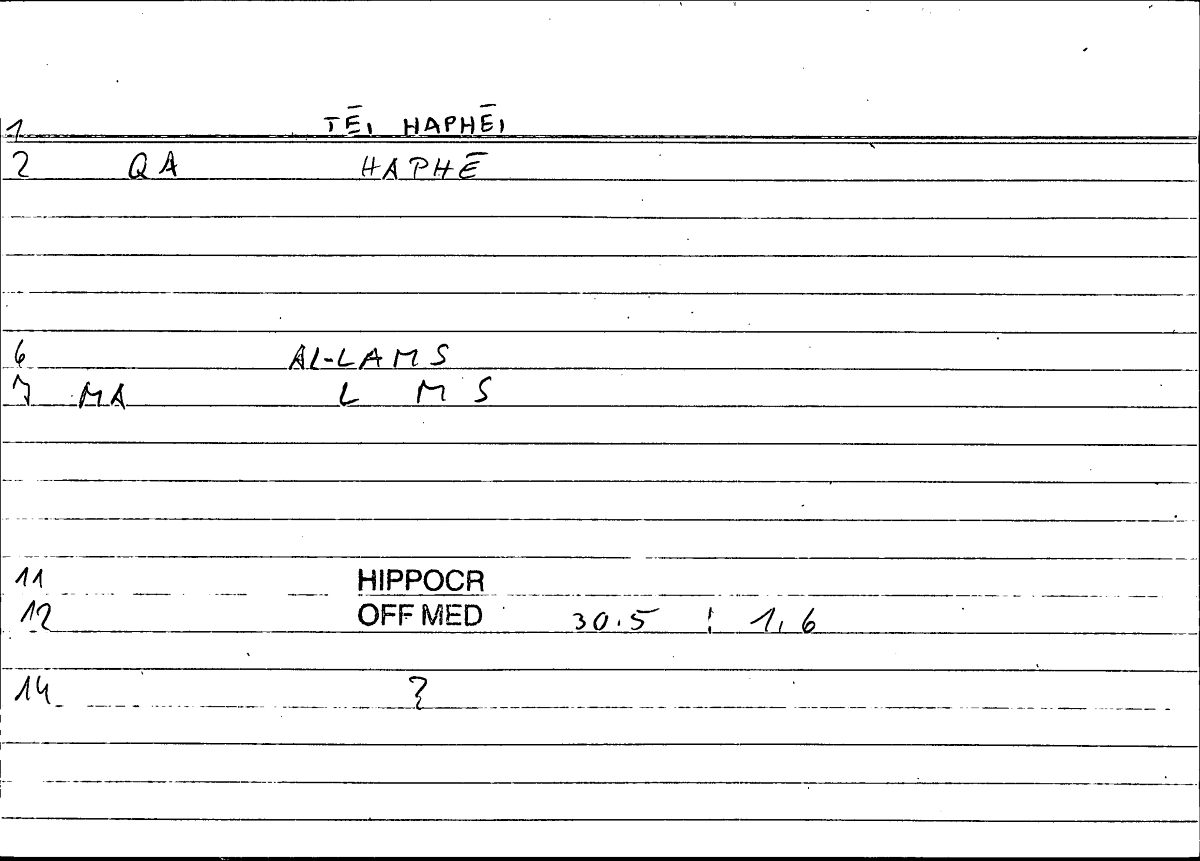 1 TĒI HAPHĒI
2 QA HAPHĒ
6 AL-LAMS
7 MA L M S
11 HIPPOCR
12 OFF MED 30.5 : 1,6
14 ?